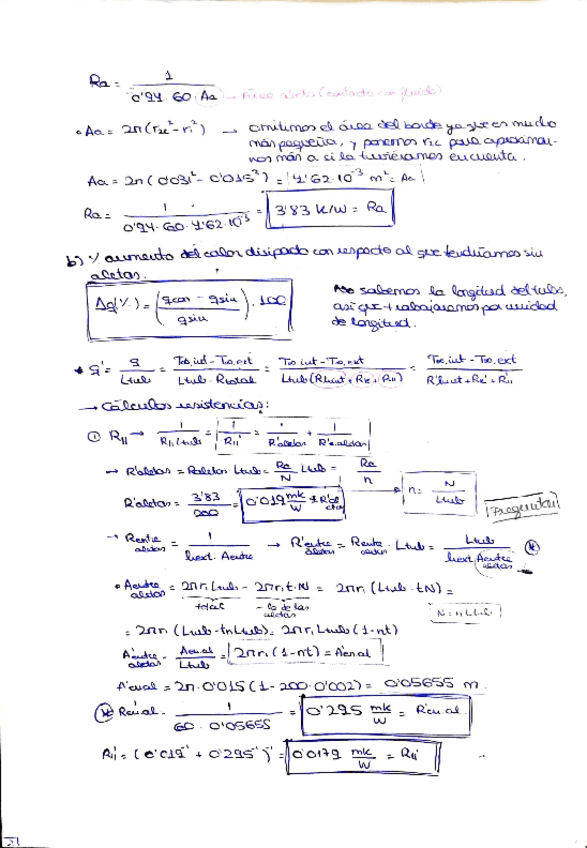 Ra = 1 / (0'94 · 60 · Aa) → Área aleta (contacto con fluido)
• Aa = 2π(r2c² - r1²) → omitimos el área del borde ya que es mucho
más pequeña, y ponemos r2c para aproximar-
nos más a si la tuviéramos en cuenta.
Aa = 2π(0'031² - 0'015²) = 4'62·10⁻³ m² = Aa
Ra = 1 / (0'94 · 60 · 4'62·10⁻³) = 3'83 K/W = Ra
b) % aumento del calor disipado con respecto al que tendríamos sin
aletas.
Δq(%) = ((qcon - qsin) / qsin) · 100
No sabemos la longitud del tubo,
así que trabajaremos por unidad
de longitud.
* q' = q / Ltub = (T∞,int - T∞,ext) / (Ltub · Rtotal) = (T∞,int - T∞,ext) / (Ltub(Rh,int + Rk + R11)) = (T∞,int - T∞,ext) / (R'h,int + Rk' + R11')
→ Cálculos resistencias:
① R11 → 1 / (R11 Ltub) = 1 / R11' = 1 / R'aletas + 1 / R'e.aletas
→ R'aletas = Raletas · Ltub = Ra/N Ltub = Ra/n
n = N / Ltub
R'aletas = 3'83 / 200 = 0'019 mK/W = R'aletas
Preguntar
→ Rentre aletas = 1 / (hext · Aentre) → R'entre aletas = Rentre aletas · Ltub = Ltub / (hext · Aentre aletas) (*)
• Aentre aletas = 2πr1 Ltub - 2πr1 t · N = 2πr1 (Ltub - tN) =
total - lo de las aletas
N = n Ltub
= 2πr1 (Ltub - tnLtub) = 2πr1 Ltub (1 - nt)
A'entre aletas = Aen.al / Ltub = 2πr1 (1 - nt) = A'en.al
A'en.al = 2π · 0'015 (1 - 200 · 0'002) = 0'05655 m.
(*) R'en.al = 1 / (60 · 0'05655) = 0'295 mK/W = R'en.al
R11' = (0'019⁻¹ + 0'295⁻¹)⁻¹ = 0'0179 mK/W = R11'